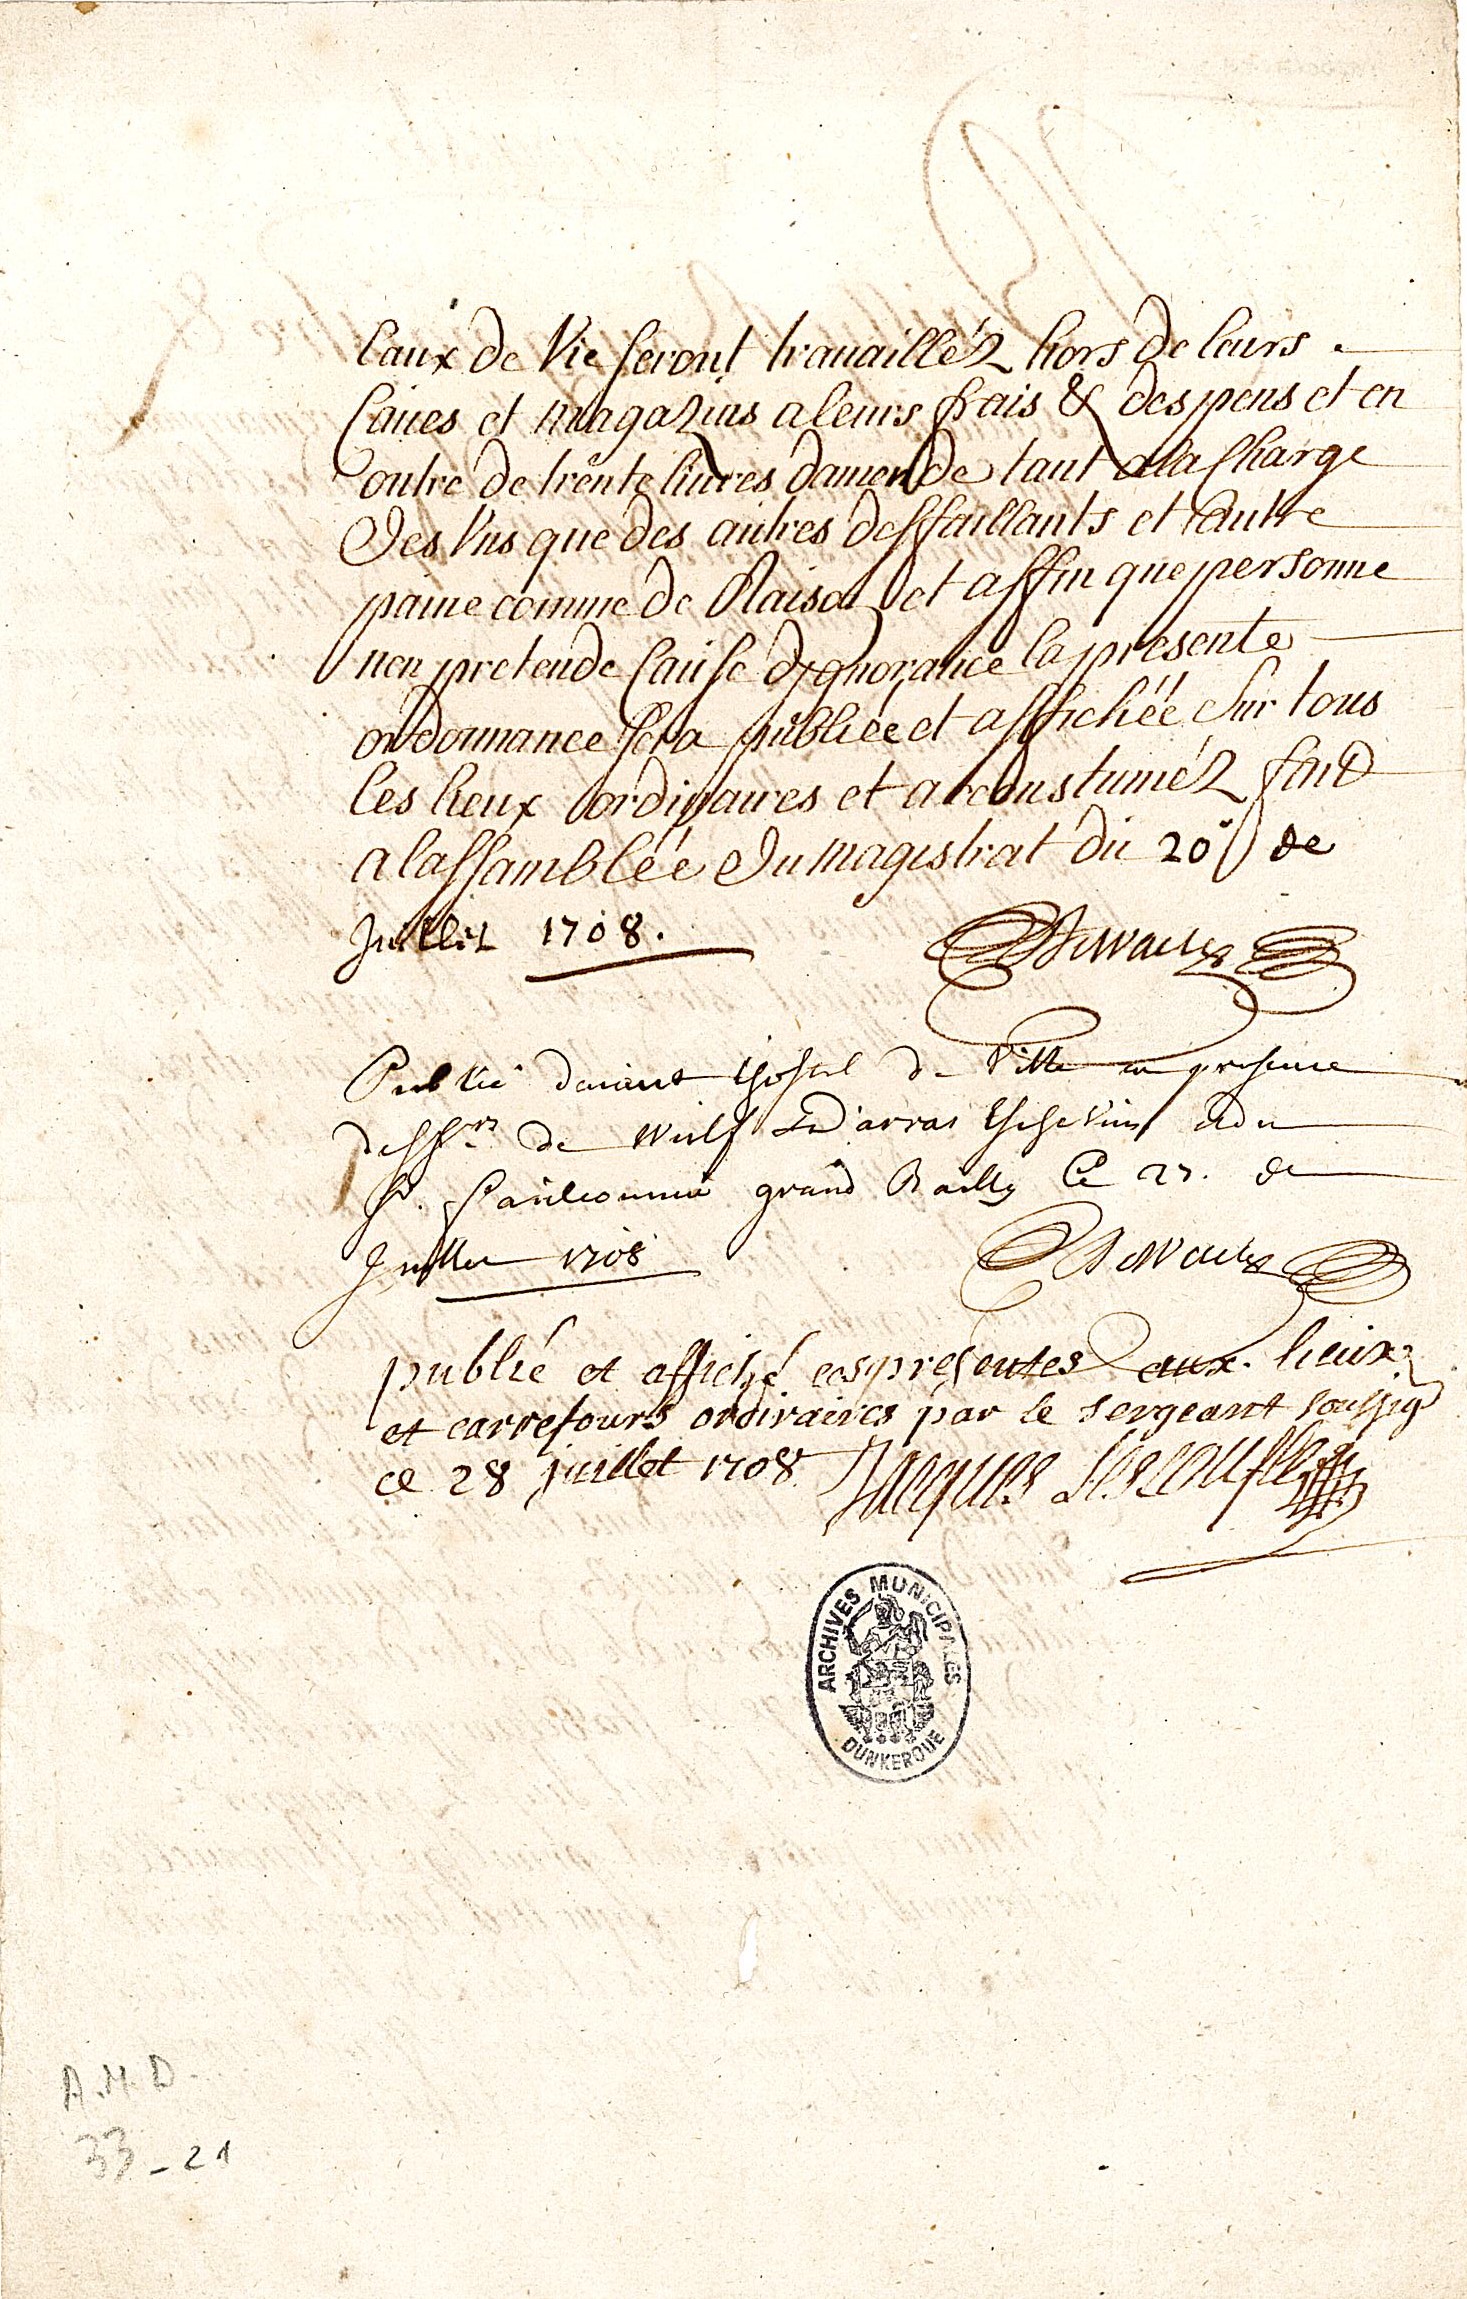 Eaux de Vie seront trauailléz hors de leurs
Caues et magazins a leurs frais & despens et en
outre de trente liures damende tant ala Charge
Des Vns que des autres deffaillants et dautre
paine comme de Raison et affin que personne
nen pretende Cause dignorance la presente
ordonnance sera publiée et affichée sur tous
les lieux ordinaires et accoustuméz faid
a lassamblée du magistrat du 20 de
Juillet 1708.
Publié deuant lhostel de Ville en presence
dess.rs de Wulf et Darras Eschevins et du
Sr. grand Bailly le 27. de
Juillet 1708
publié et affiché ces presentes aux lieux
et carrefours ordinaires par le sergeant soussig
ce 28 juillet 1708 Jacques
ARCHIVES MUNICIPALES
DUNKERQUE
A.M.D.
33-21